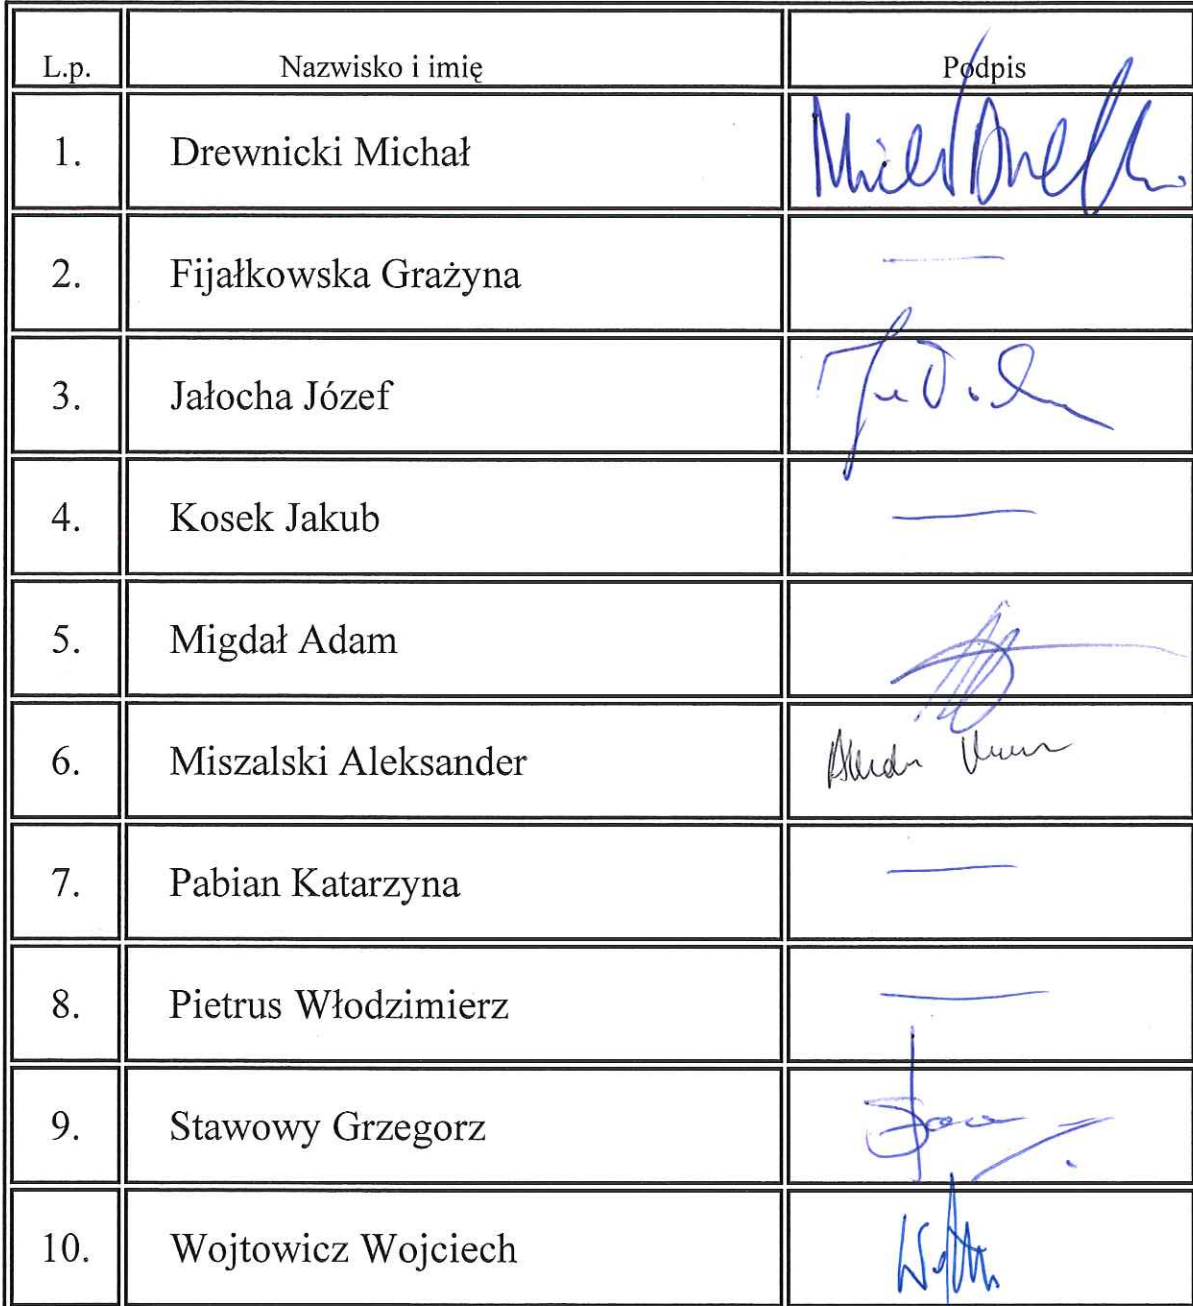 L.p. Nazwisko i imię Podpis
1. Drewnicki Michał
2. Fijałkowska Grażyna —
3. Jałocha Józef
4. Kosek Jakub —
5. Migdał Adam
6. Miszalski Aleksander
7. Pabian Katarzyna —
8. Pietrus Włodzimierz —
9. Stawowy Grzegorz
10. Wojtowicz Wojciech